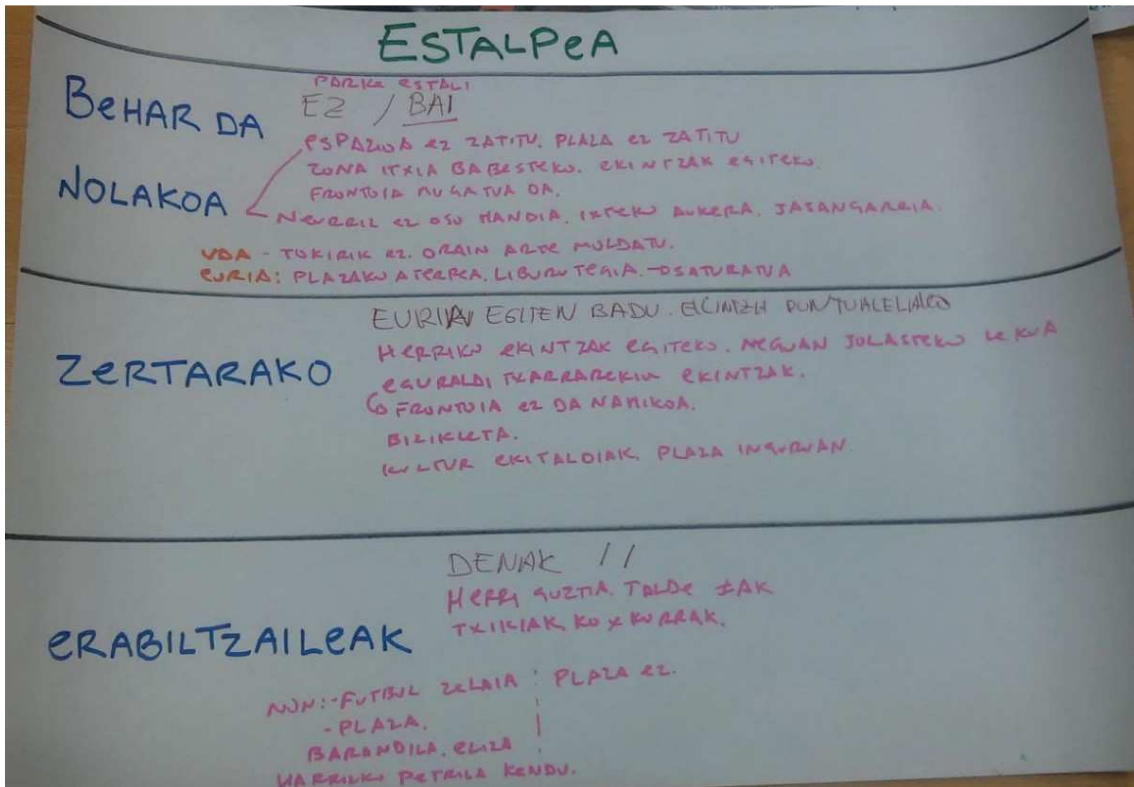 ESTALPEA
BEHAR DA
PARKE ESTALI
EZ / BAI
NOLAKOA
ESPAZIOA EZ ZATITU. PLAZA EZ ZATITU
ZONA ITXIA BABESTEKO. EKINTZAK EGITEKO.
FRONTOIA MUGATUA DA.
NEURRIZ EZ OSO HANDIA. IXTEKO AUKERA. JASANGARRIA.
UDA - TOKIRIK EZ. ORAIN ARTE MOLDATU.
EURIA: PLAZAKO ATERPEA. LIBURUTEGIA. → OSATURATUA
ZERTARAKO
EURIA EGITEN BADU. EKINTZA PUNTUALELAKO
HERRIKO EKINTZAK EGITEKO. NEGUAN JOLASTEKO LEKUA
EGURALDI TXARRAREKIN EKINTZAK.
↳ FRONTOIA EZ DA NAHIKOA.
BIZIKLETA.
KULTUR EKITALDIAK. PLAZA INGURUAN.
ERABILTZAILEAK
DENAK //
HERRI GUZTIA. TALDE ≠AK
TXIKIAK, KOXKORRAK.
NUN: - FUTBOL ZELAIA PLAZA EZ.
- PLAZA.
BARANDILA. ELIZA
HARRIZKO PETRILA KENDU.